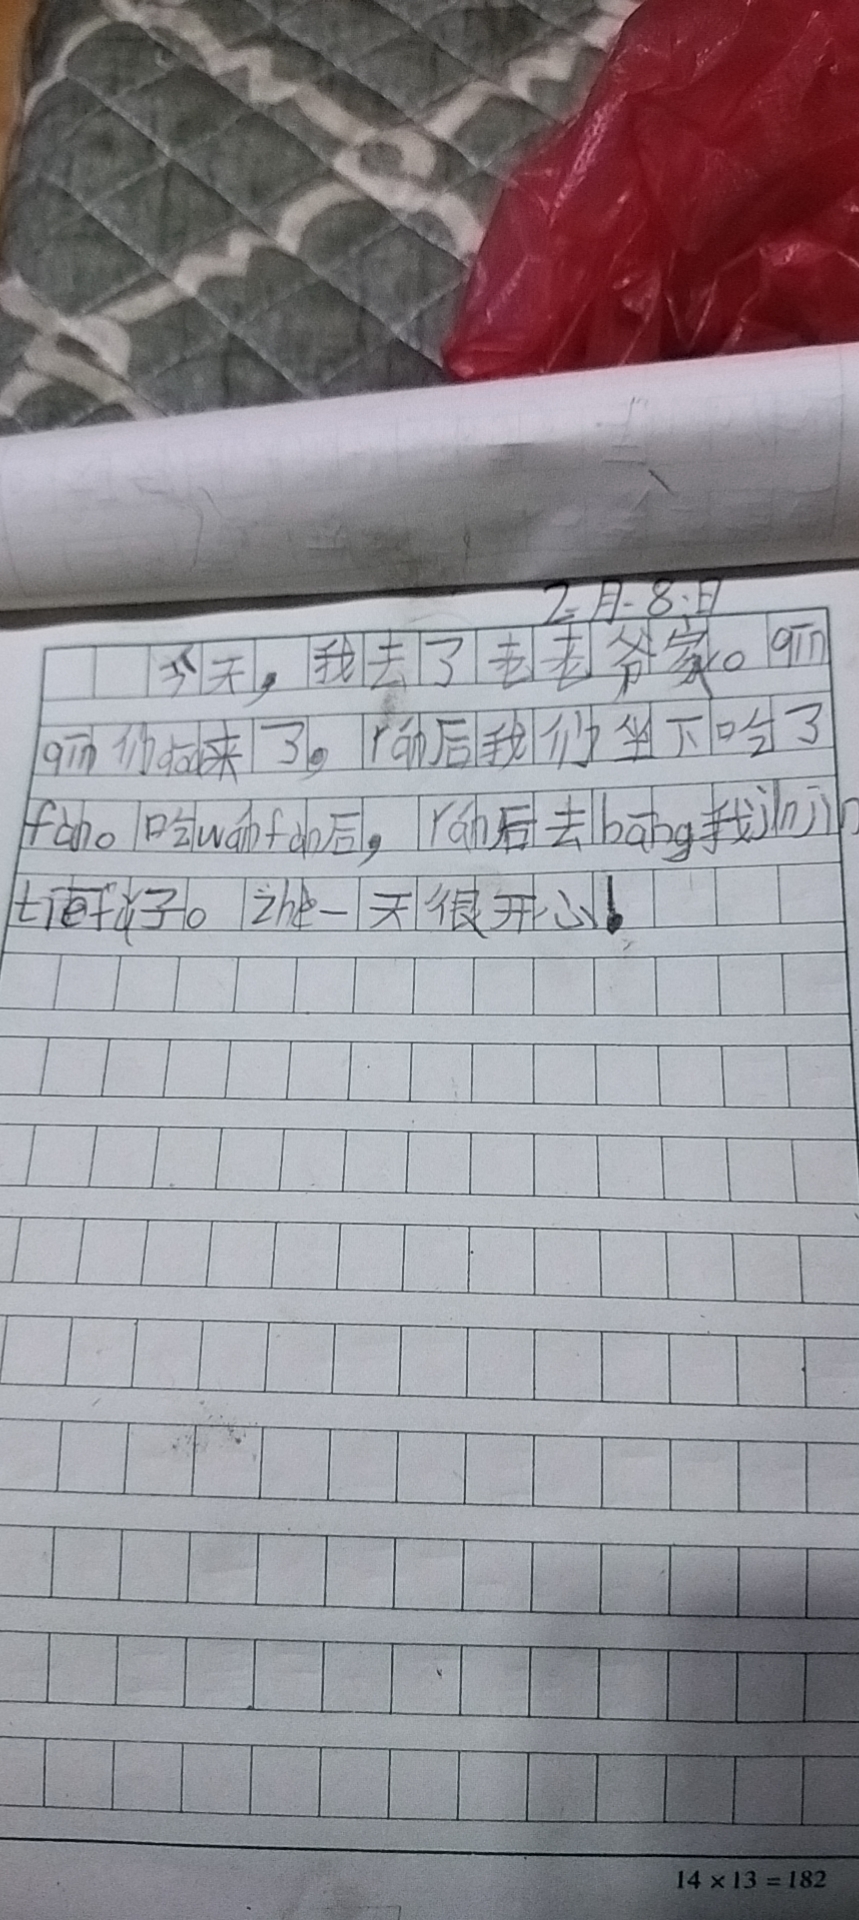 2月8日
今天，我去了老老爷家。qīn
qīn们dōu来了。rán后我们坐下吃了
fàn。吃wán fàn后，rán后去bāng我jìn jìn
tiē fú子。zhè一天很开心！
14×13=182